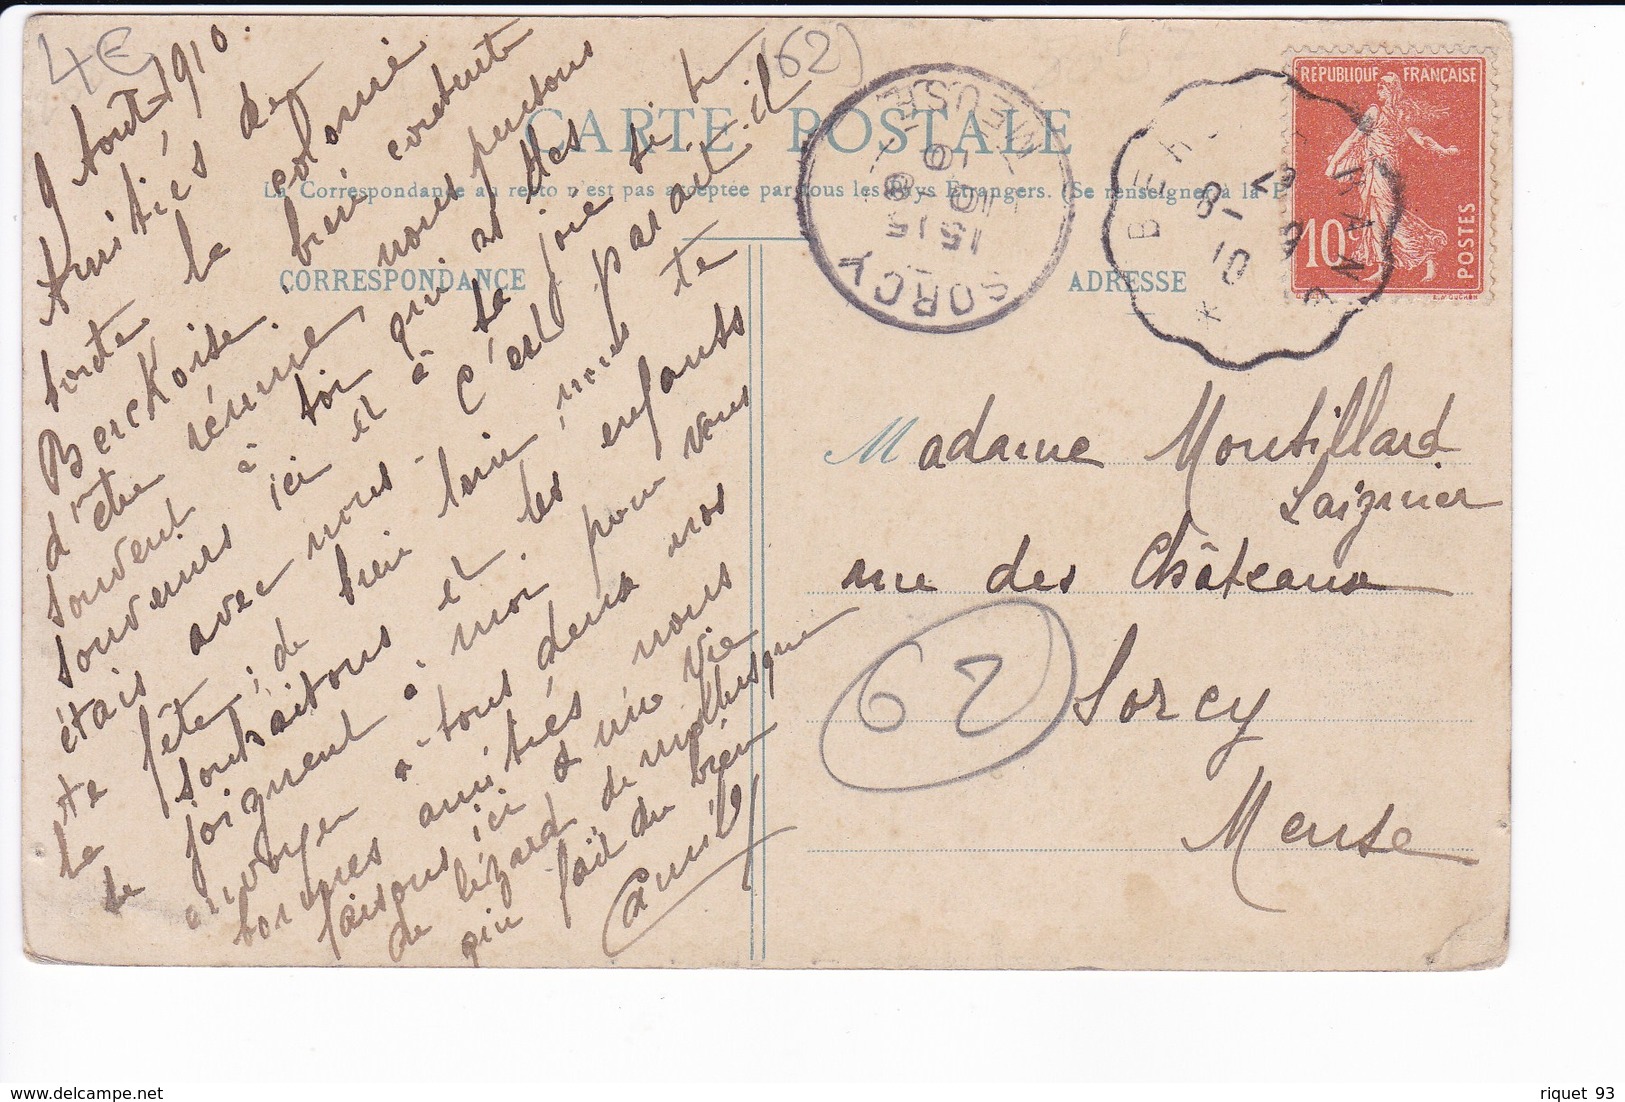 4€
(62)
9 Août 1910.
Amitiés de
toute la colonie
Berckoise. bien contente
d'être réunie, nous pensons
souvent à toi qui as des
souvenirs ici et à la joie si tu
étais avec nous - C'est parait-il
ta fête; de bien loin, nous te
la souhaitons et les enfants
se joignent à moi pour vous
envoyer à tous deux nos
bonnes amitiés nous
faisons ici une vie
de lézard de mollusque
qui fait du bien
CARTE POSTALE
La Correspondance au recto n'est pas acceptée par tous les Pays Etrangers. (Se renseigner à la P
CORRESPONDANCE
ADRESSE
SORCY
MEUSE
15 15
10 - 8
10
BERCK
8 - 10
REPUBLIQUE FRANÇAISE
10 c
POSTES
Madame Montillard
Laignier
rue des Châteaux
62
Sorcy
Meuse
riquet 93